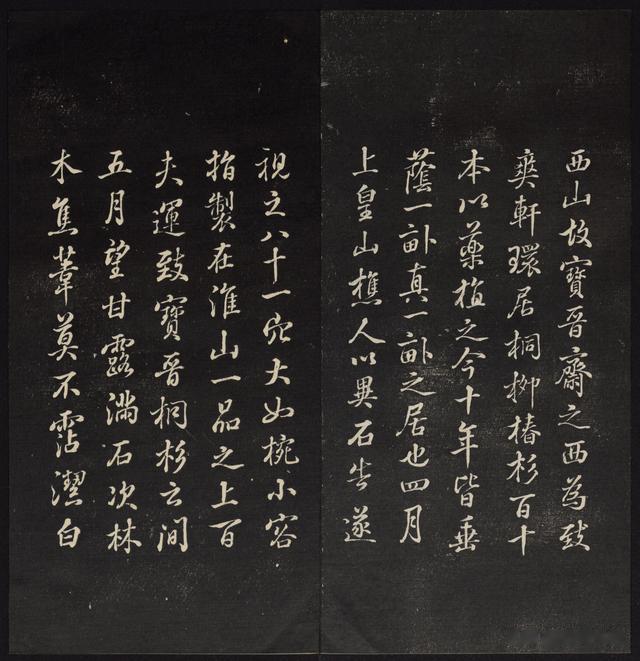 西山故寶晉齋之西為致
爽軒環居桐柳椿杉百十
本以藥植之今十年皆垂
蔭一畝真一畝之居也四月
上皇山樵人以異石告遂
視之八十一穴大如椀小容
指製在淮山一品之上百
夫運致寶晉桐杉之間
五月望甘露滿石次林
木焦葦莫不霑潔白